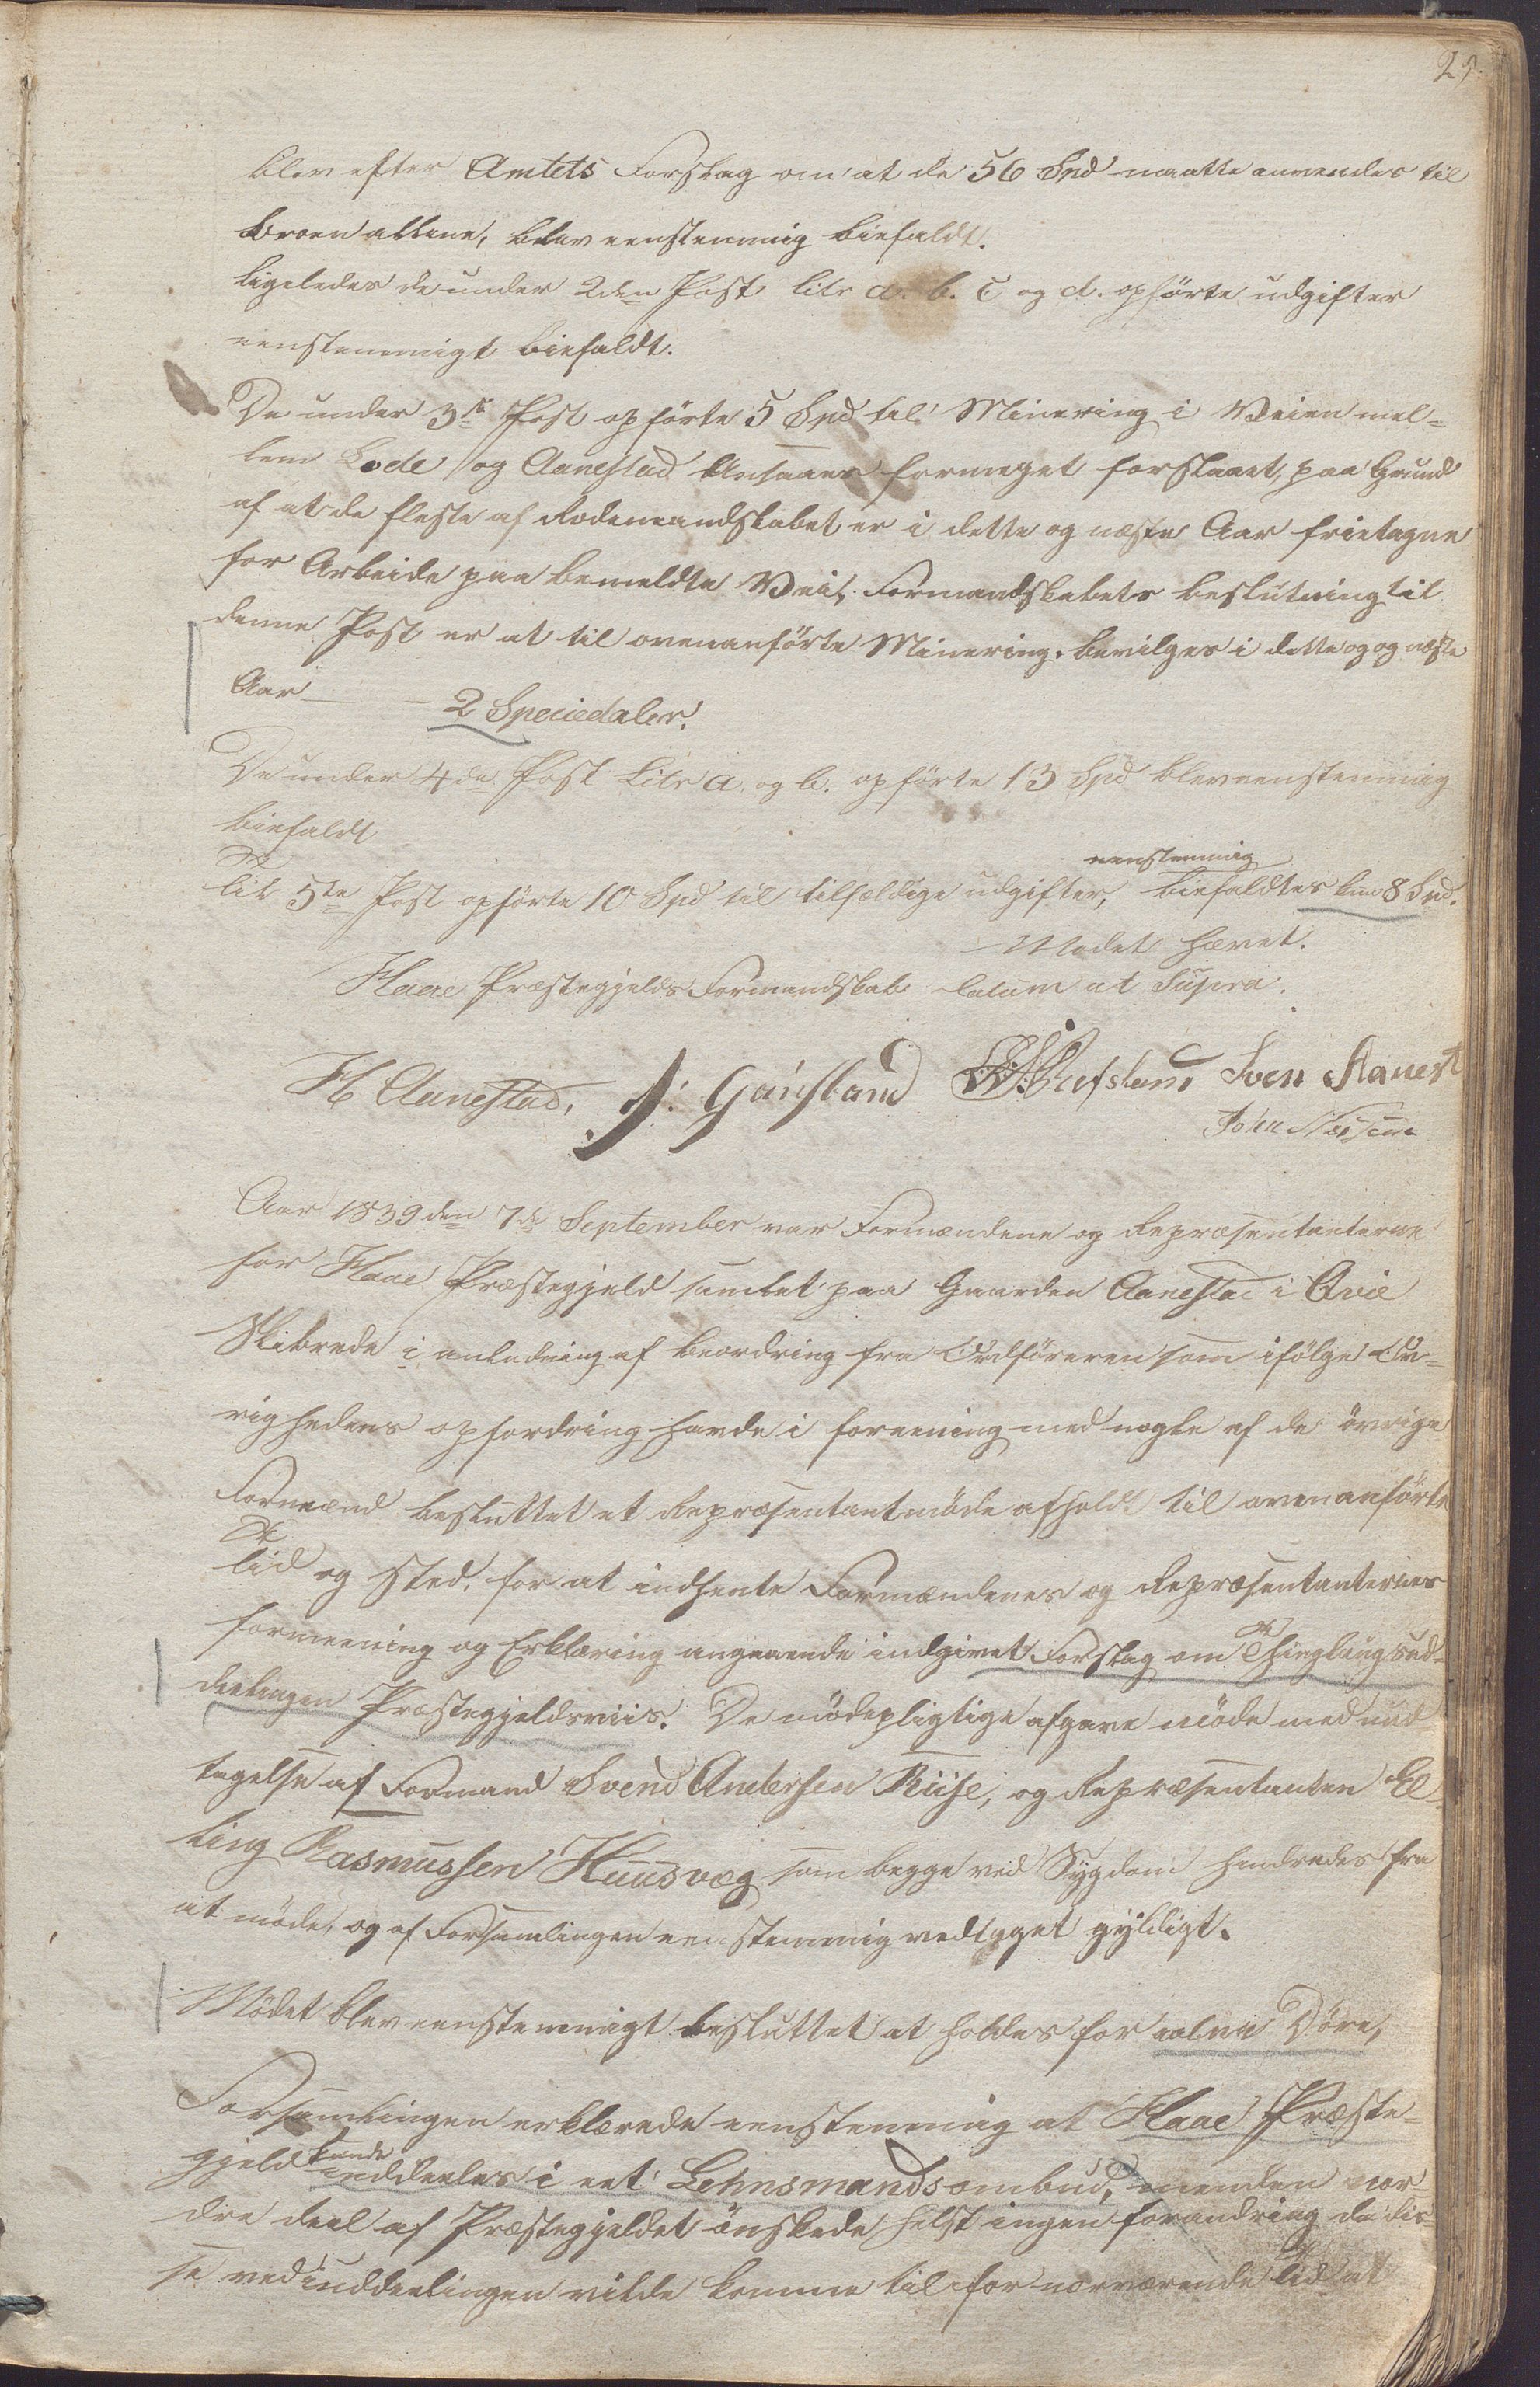 25.
blev efter Amtets Forslag om at de 56 Spd maatte anvendes til
Broen allene, blev eenstemmig biefaldt.
Ligeledes de under 2den Post Litr a. b. c og d. opførte udgifter
eenstemmigt biefaldt.
De under 3die Post opførte 5 Spd til Minering i Veien mel-
lem Lode og Aanestad Ansaaes formeget forslaaet, paa Grund
af at de fleste af Rodemandskabet er i dette og næste Aar frietagne
for Arbeide paa bemeldte Vei, Formandskabets beslutning til
denne Post er at til ovenanførte Minering bevilges i dette og og næste
Aar 2 Speciedaler.
De under 4de Post Litr a. og b. opførte 13 Spd blev eenstemmig
biefaldt
Til 5te Post opførte 10 Spd til tilfældige udgifter, eenstemmig biefaldtes kun 8 Spd.
Mødet hævet.
Haae Præstegjelds Formandskab datum ut Supra.
H Aanestad, J. Gausland Sven Aanest
John
Aar 1839 den 7de September var Formændene og Repræsentanterne
for Haae Præstegjeld samlet paa Gaarden Aanestad i Qvie
Skibrede i anledning af beordring fra Ordføreren som ifølge Øv-
righedens opfordring havde i foreening med nogle af de øvrige
Formænd besluttet et Repræsentantmøde afholdt til ovenanførte
Tid og Sted, for at indhente Formændenes og Repræsentanternes
formeening og Erklæring angaaende indgivet Forslag om Thinglaugsind-
deelingen Præstegjeldsviis. De mødepligtige afgave møde med und
tagelse af Formand Svend Andersen Riise, og Repræsentanten El-
ling Rasmussen Huusvæg som begge ved Sygdom hindredes fra
at møde, og af Forsamlingen eenstemmig vedtaget gyldigt.
Mødet blev eenstemmigt besluttet at holdes for aabne Døre,
Forsamlingen erklærede eenstemmig at Haae Præste-
gjeld kunde inddeeles i eet Lehnsmandsombud, men den nor-
dre deel af Præstegjeldet ønskede helst ingen forandring da dis-
se ved inddeelingen vilde komme til for nærværende Tid at